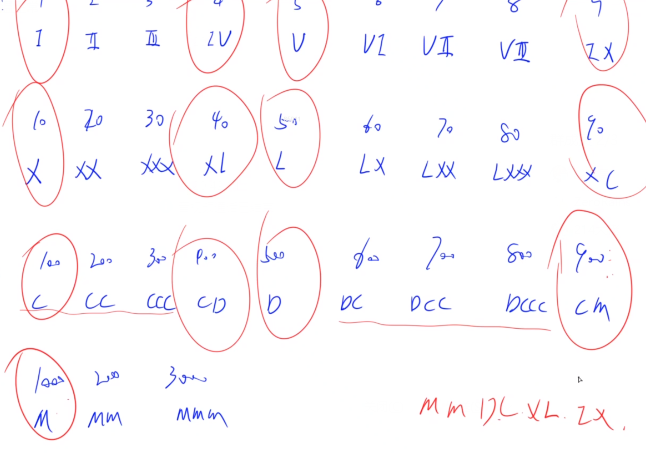 1 2 3 4 5 6 7 8 9
I II III IV V VI VII VIII IX
10 20 30 40 50 60 70 80 90
X XX XXX XL L LX LXX LXXX XC
100 200 300 400 500 600 700 800 900
C CC CCC CD D DC DCC DCCC CM
1000 200 3000
M MM MMM
MMDCXLIX.